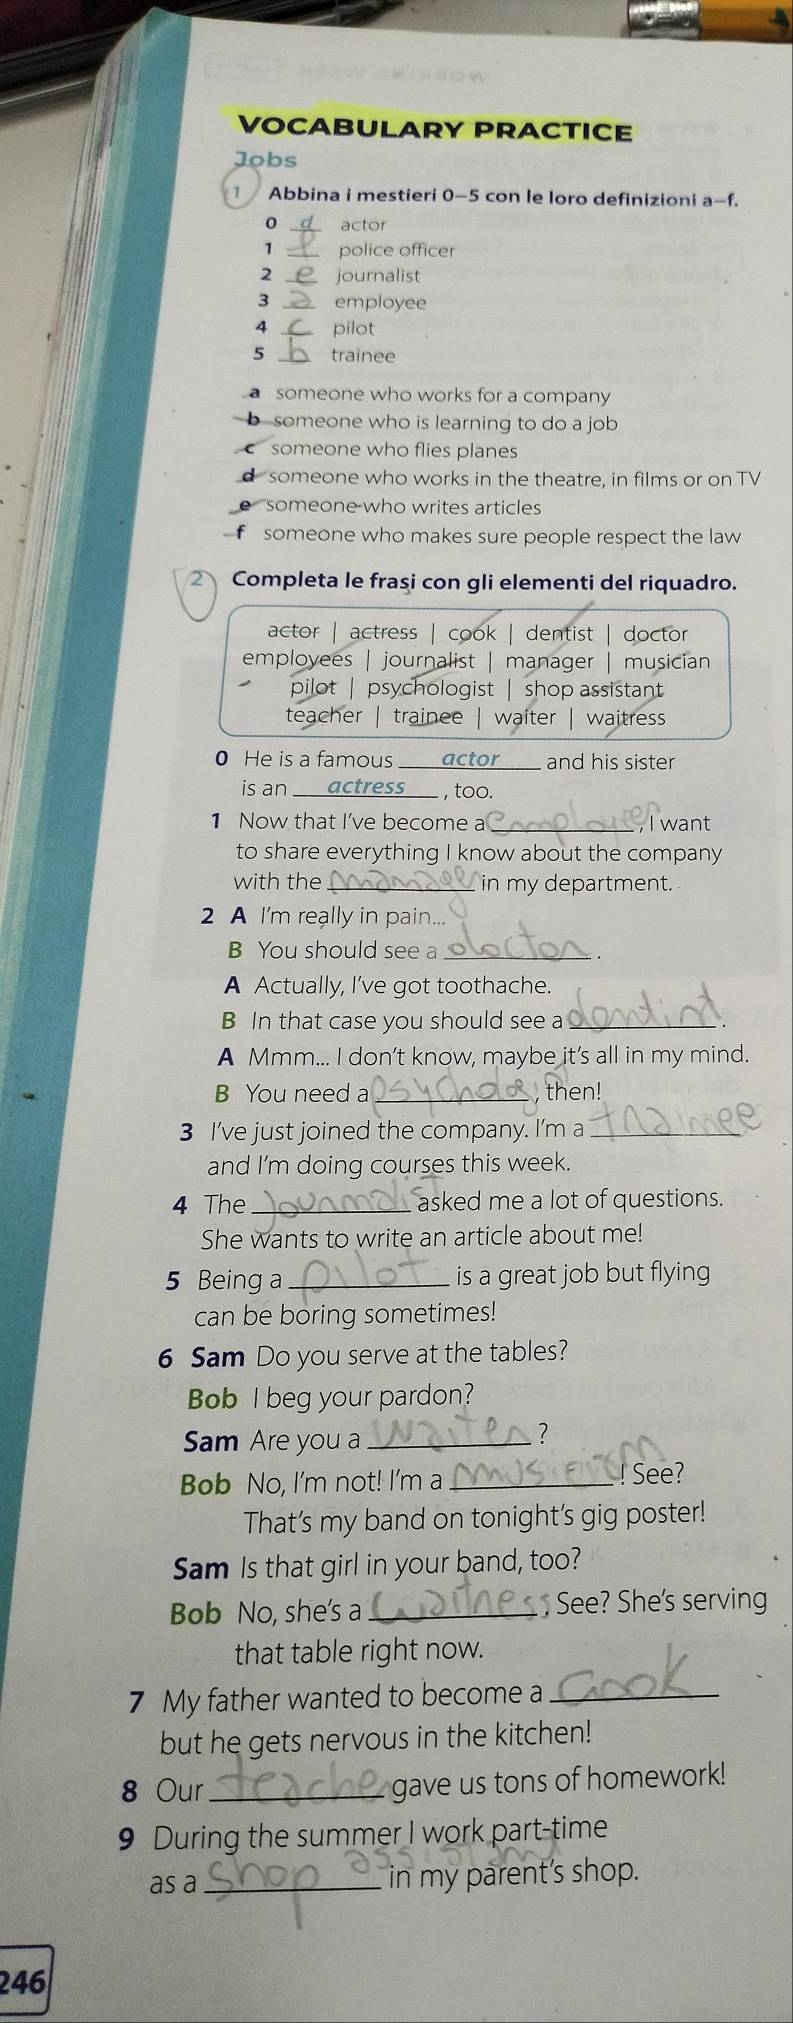 VOCABULARY PRACTICE
Jobs
1 Abbina i mestieri 0–5 con le loro definizioni a–f.
0 d actor
1 f police officer
2 e journalist
3 a employee
4 c pilot
5 b trainee
a someone who works for a company
b someone who is learning to do a job
c someone who flies planes
d someone who works in the theatre, in films or on TV
e someone who writes articles
f someone who makes sure people respect the law
2 Completa le frasi con gli elementi del riquadro.
actor | actress | cook | dentist | doctor
employees | journalist | manager | musician
pilot | psychologist | shop assistant
teacher | trainee | waiter | waitress
0 He is a famous actor and his sister
is an actress, too.
1 Now that I've become a employee, I want
to share everything I know about the company
with the manager in my department.
2 A I'm really in pain...
B You should see a doctor.
A Actually, I've got toothache.
B In that case you should see a dentist.
A Mmm... I don't know, maybe it's all in my mind.
B You need a psychologist, then!
3 I've just joined the company. I'm a trainee
and I'm doing courses this week.
4 The journalist asked me a lot of questions.
She wants to write an article about me!
5 Being a pilot is a great job but flying
can be boring sometimes!
6 Sam Do you serve at the tables?
Bob I beg your pardon?
Sam Are you a waiter?
Bob No, I'm not! I'm a musician! See?
That's my band on tonight's gig poster!
Sam Is that girl in your band, too?
Bob No, she's a waitress. See? She's serving
that table right now.
7 My father wanted to become a cook
but he gets nervous in the kitchen!
8 Our teacher gave us tons of homework!
9 During the summer I work part-time
as a shop assistant in my parent's shop.
246